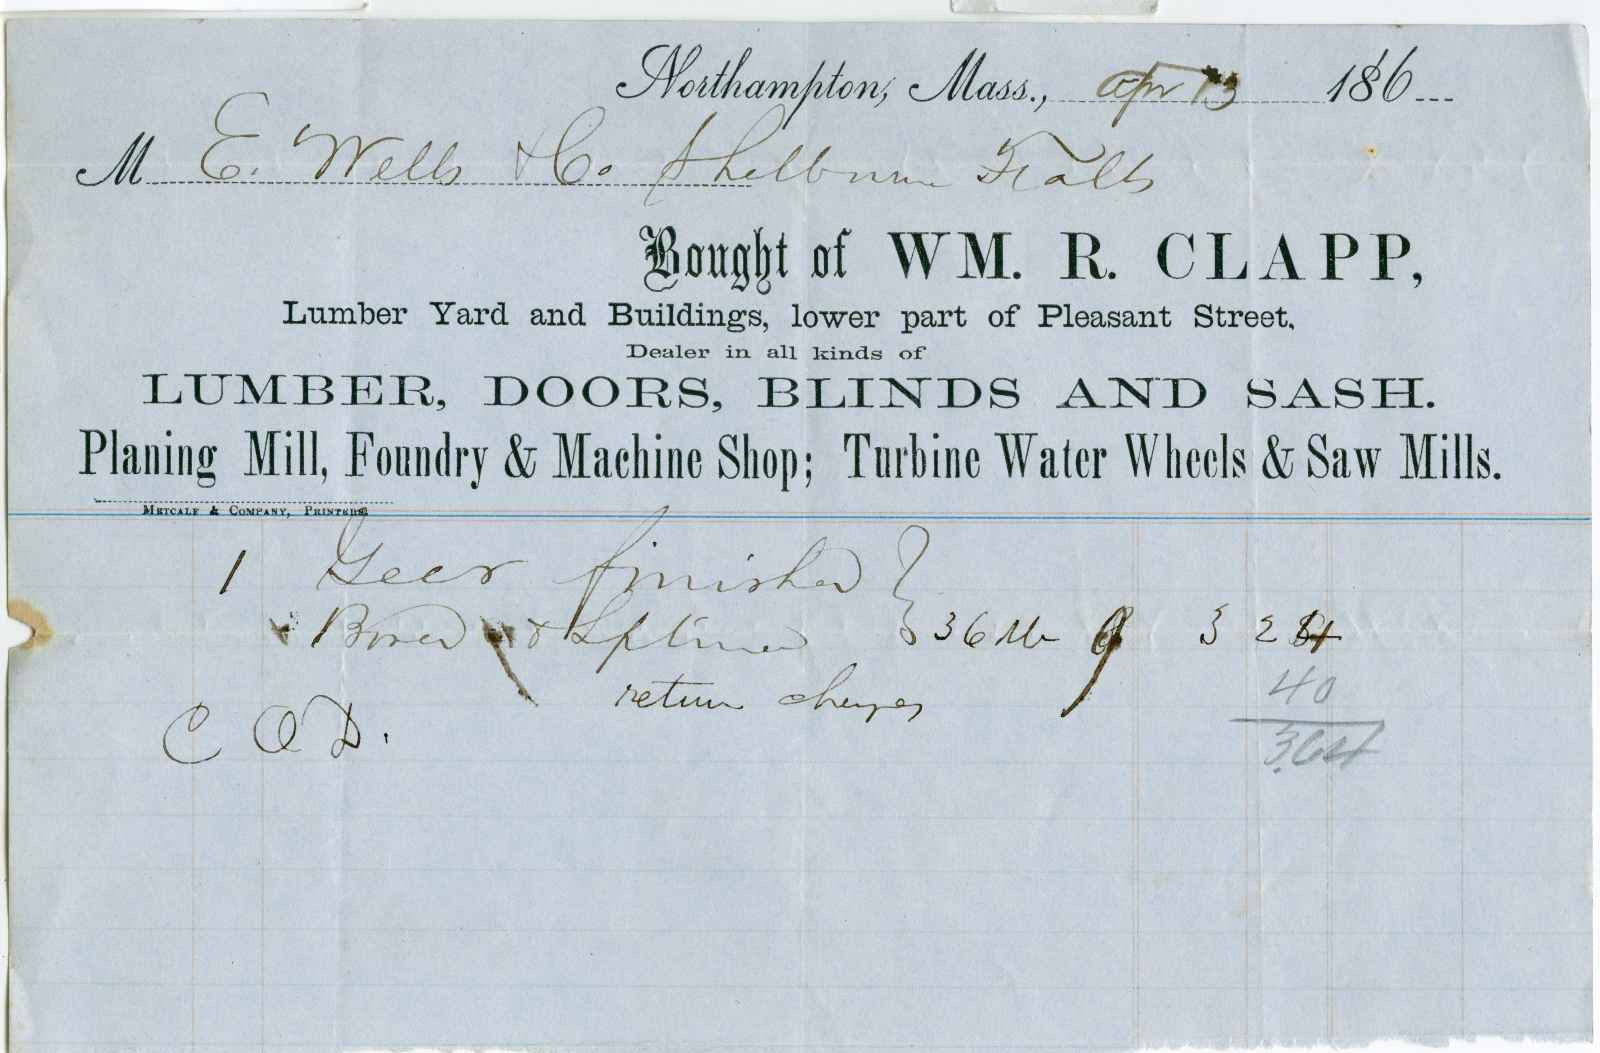 Northampton, Mass., Apr 13 186
M E. Wells & Co Shelburne Falls
Bought of WM. R. CLAPP,
Lumber Yard and Buildings, lower part of Pleasant Street,
Dealer in all kinds of
LUMBER, DOORS, BLINDS AND SASH.
Planing Mill, Foundry & Machine Shop; Turbine Water Wheels & Saw Mills.
METCALF & COMPANY, PRINTERS
1 Gear finished
Bored & Splined 36 lb 9 3 24
return charges 40
C O D. 3.64